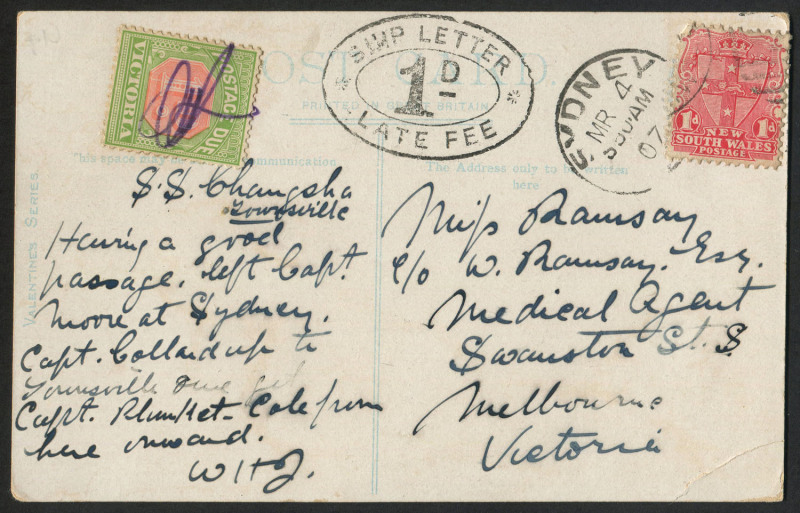 POSTAGE DUE
VICTORIA
POST CARD
PRINTED IN GREAT BRITAIN
SHIP LETTER
1D
LATE FEE
SYDNEY
MR 4
AM
07
1d 1d
NEW
SOUTH WALES
POSTAGE
VALENTINES SERIES.
This space may be communication
S.S. Changsha
Townsville
Having a good
passage. left Capt.
Moore at Sydney.
Capt. Collard up to
Townsville
Capt. Plunket-Cole from
here onward.
The Address only to be written
here
Miss Ramsay
c/o W. Ramsay. Esq.
Medical Agent
Swanston St. S.
Melbourne
Victoria